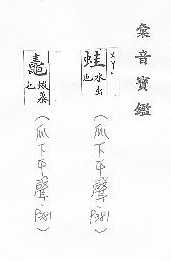 彙音寶鑑
ㄨㄚ
蛙 水虫也
（瓜下平聲、P381）
鼃 蝦蟇也
（瓜下平聲、P381）